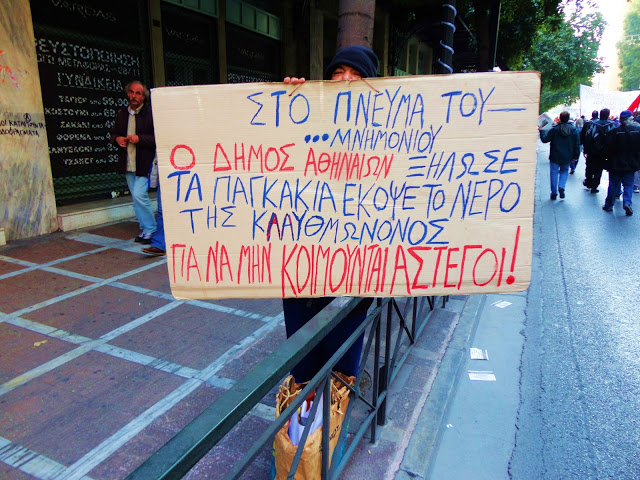 VARDAS
ΡΕΥΣΤΟΠΟΙΗΣΗ
ΓΥΝΑΙΚΕΙΑ
ΣΤΟ ΠΝΕΥΜΑ ΤΟΥ—
...ΜΝΗΜΟΝΙΟΥ
Ο ΔΗΜΟΣ ΑΘΗΝΑΙΩΝ ΞΗΛΩΣΕ
ΤΑ ΠΑΓΚΑΚΙΑ ΕΚΟΨΕ ΤΟ ΝΕΡΟ
ΤΗΣ ΚΛΑΥΘΜΩΝΟΝΟΣ
ΓΙΑ ΝΑ ΜΗΝ ΚΟΙΜΟΥΝΤΑΙ ΑΣΤΕΓΟΙ!